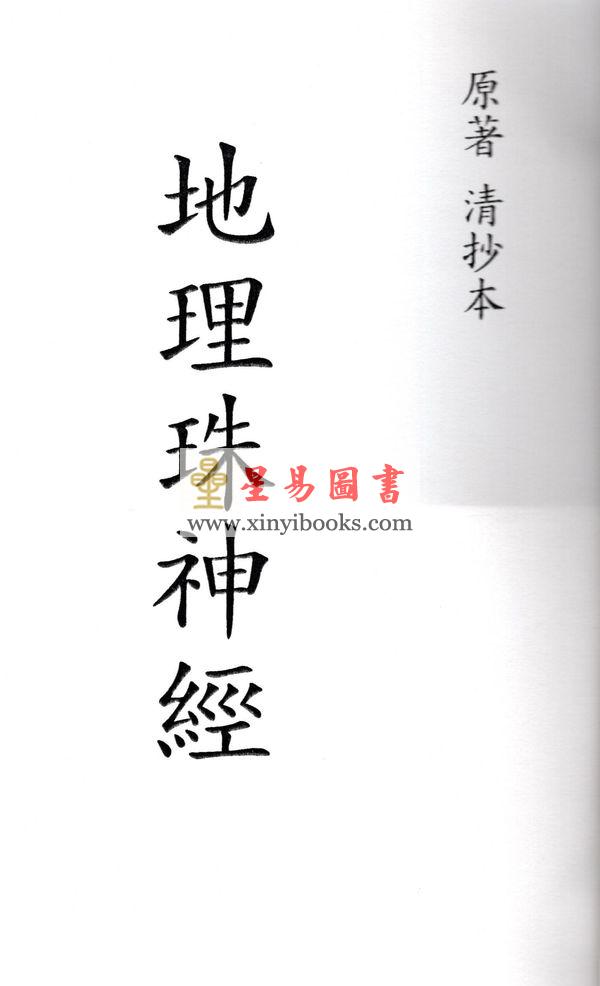 原著 清抄本
地理珠神經
星易圖書
www.xinyibooks.com